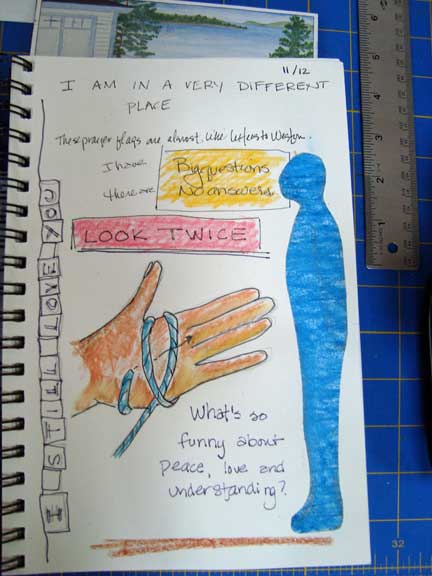 11/12
I AM IN A VERY DIFFERENT
PLACE
These prayer flags are almost like letters to Weston.
I have Big questions
there are No answers
LOOK TWICE
I STILL LOVE YOU
What's so
funny about
peace, love and
understanding?
6
5
4
3
2
1
32